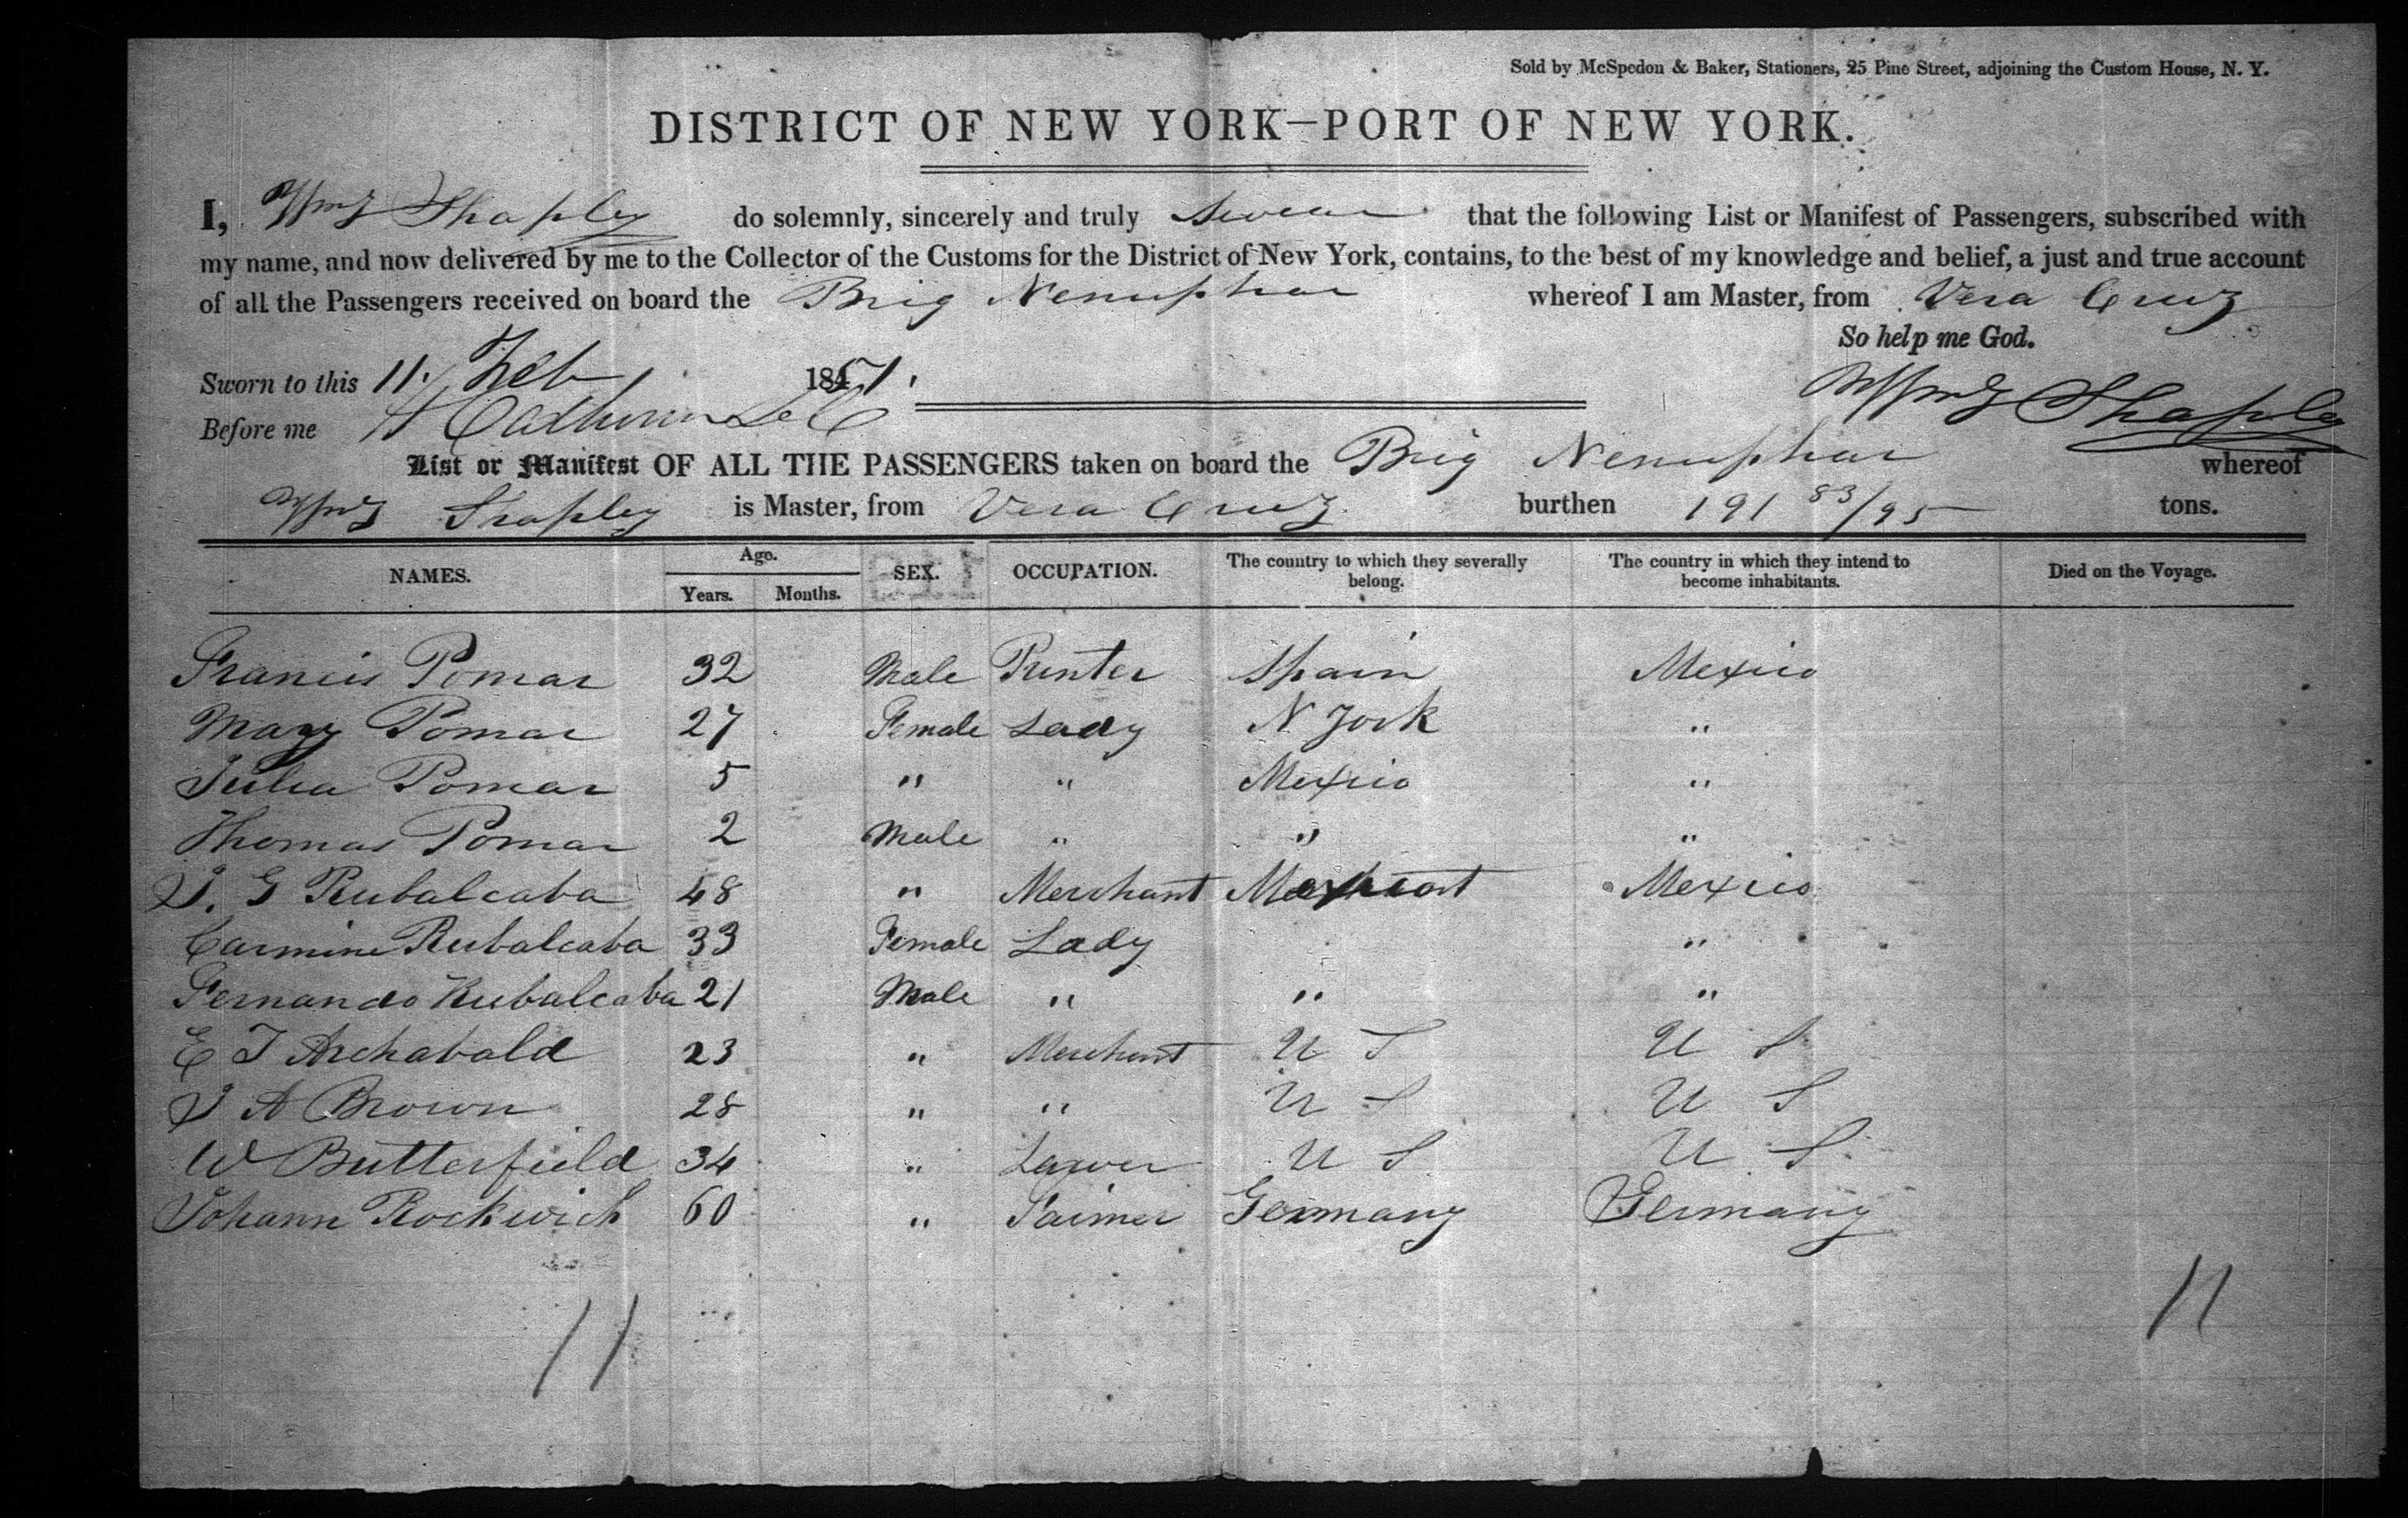 Sold by McSpedon & Baker, Stationers, 25 Pine Street, adjoining the Custom House, N. Y.
DISTRICT OF NEW YORK—PORT OF NEW YORK.
I, Shapley do solemnly, sincerely and truly Swear that the following List or Manifest of Passengers, subscribed with
my name, and now delivered by me to the Collector of the Customs for the District of New York, contains, to the best of my knowledge and belief, a just and true account
of all the Passengers received on board the Brig Nenuphar whereof I am Master, from Vera Cruz
So help me God.
Sworn to this 11. Feb 1851.
Shapley
Before me
List or Manifest OF ALL THE PASSENGERS taken on board the Brig Nenuphar whereof
Shapley is Master, from Vera Cruz burthen 191 83/95 tons.
NAMES. Age. SEX. OCCUPATION. The country to which they severally belong. The country in which they intend to become inhabitants. Died on the Voyage.
Years. Months.
Francis Pomar 32 Male Printer Spain Mexico
Mary Pomar 27 Female Lady N York "
Julia Pomar 5 " " Mexico "
Thomas Pomar 2 Male " " "
J. G Rubalcaba 48 " Merchant Mexico
Carmine Rubalcaba 33 Female Lady "
Fernando Rubalcaba 21 Male " " "
E T Archabald 23 " Merchant U S U S
J A Brown 28 " " U S U S
W Butterfield 34 " U S U S
Johann Rockwich 60 " Germany Germany
11 11